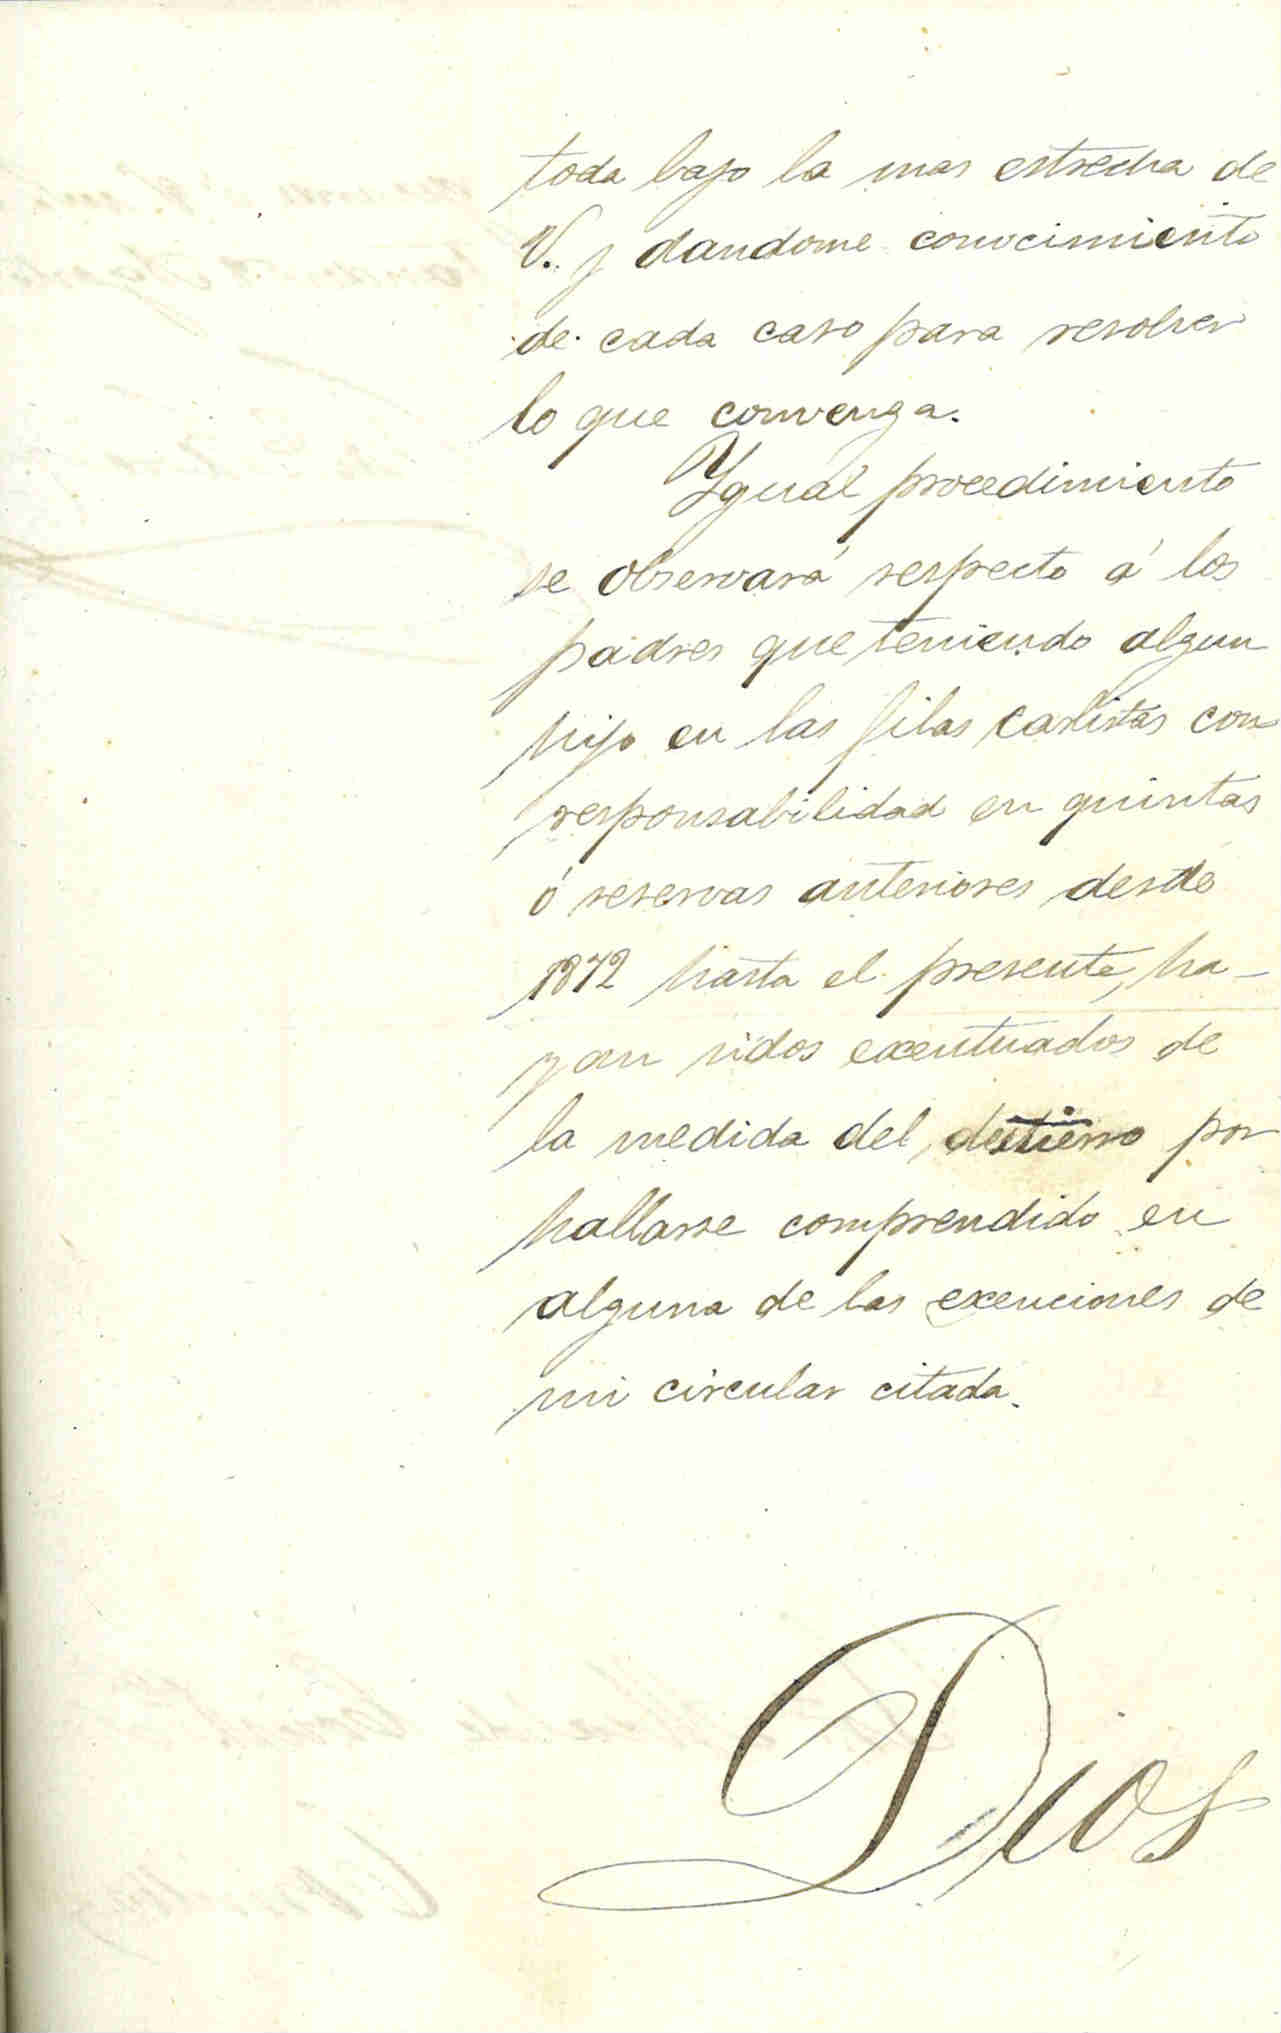 toda bajo la mas estrecha de
V. y dandome conocimiento
de cada caso para resolver
lo que convenga.
Ygual procedimiento
se observará respecto á los
padres que teniendo algun
hijo en las filas carlistas con
responsabilidad en quintas
ó reservas anteriores desde
1872 hasta el presente, ha-
yan sidos exentuados de
la medida del destierro por
hallarse comprendido en
alguna de las exenciones de
mi circular citada.
Dios